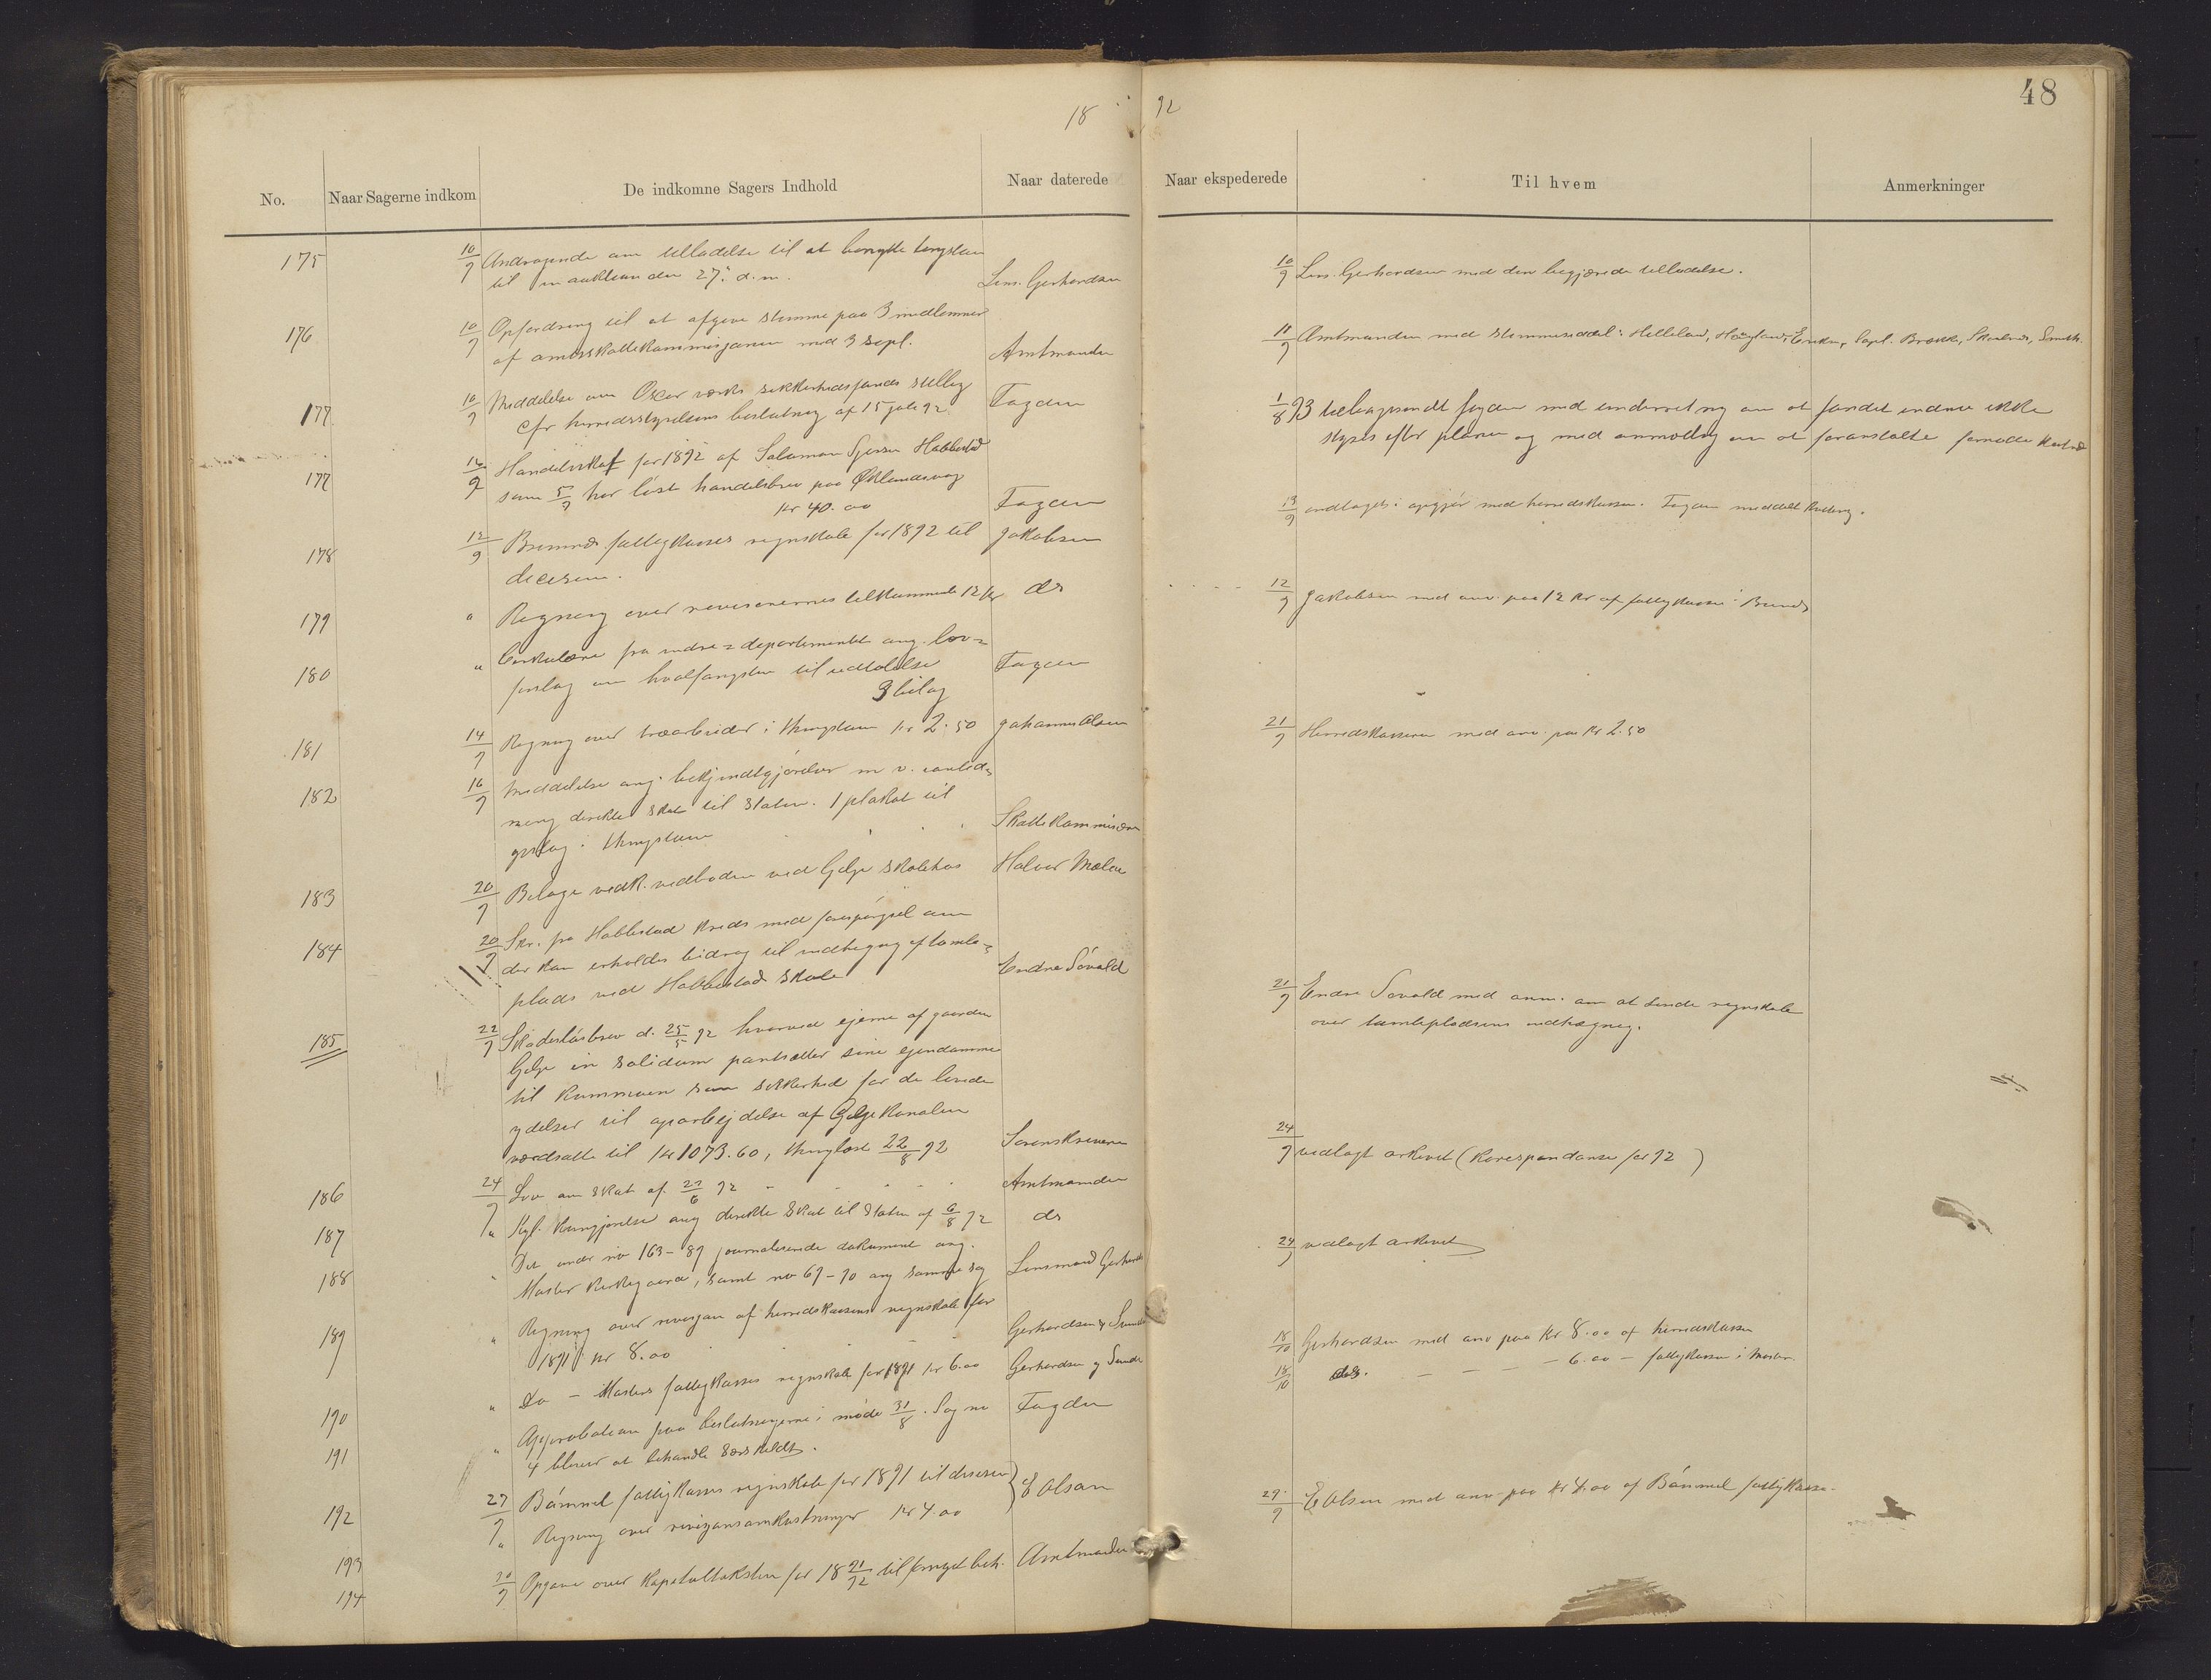 18 92
48
No. Naar Sagerne indkom De indkomne Sagers Indhold Naar daterede Naar ekspederede Til hvem Anmerkninger
175 10/9 Andragende om tilladelse til at benytte tingstuen
til en auktion den 27. d.m. Lens. Gerhardsen
10/9 Lens. Gerhardsen med den begjærede tilladelse.
176 10/9 Opfordring til at afgive stemme paa 3 medlemmer
af amtsskattekommisjonen med 3 supl. Amtmanden
11/9 Amtmanden med stemmeseddel: Helleland, Høyland, Supl. Smith.
177 10/9 Meddelelse om Oscar værks sikkerhedsfonds stilling
cfr herredsstyrelsens beslutning af 15 juli 92. Fogden
1/8 93 tilbagesendt fogden med underretning om at fondet endnu ikke
styres efter planen og med anmodning om at foranstalte fornøde
177 12/9 Handelsskat for 1892 af Salamon Habbestad
som 5/9 har løst handelsbrev paa Øklandsvaag
kr 40.00 Fogden
13/9 indtaget i opgjør med herredskassen. Fogden meddelt kvittering.
178 12/9 Bremnes fattigkasses regnskab for 1892 til Jakobsen
decision.
179 " Regning over revisorernes tilkommende 12 kr ds
12/9 Jakobsen med anv. paa 12 kr af fattigkassen i Bremnes
180 " Cirkulære fra indre-departementet ang. lov-
forslag om hvalfangsten til udtalelse Fogden
3 bilag
181 14/9 Regning over træarbeider i thingstuen kr 2.50 Johannes Olsen
21/9 Herredskasseren med anv. paa kr 2.50
182 16/9 Meddelelse ang. bekjendtgjørelser m v. i anled-
ning direkte skat til staten. 1 plakat til
opslag i thingstuen Skattekommisæren
183 20/9 Bilage vedk. vedboden ved Gilje skolehus Halvor Mælen
184 20/9 Skr. fra Habbestad kreds med forespørgsel om
der kan erholdes bidrag til indhegning af tomte-
plads ved Habbestad skole Endre Søvold
21/9 Endre Søvold med anm. om at sende regnskab
over tomtepladsens indhegning.
185 22/9 Skadesløsbrev d. 25/5 92 hvorved eierne af gaarden
Gilje in solidum pantsætter sine eiendomme
til kommunen som sikkerhed for de
ydelser til oparbejdelse af Giljekanalen
værdsatte til kr 1073.60, thinglæst 22/8 92 Sorenskriveren
24/9 vedlagt arkivet (korrespondanse for 92)
186 24/9 Lov om skat af 27/6 92 Amtmanden
187 " Kgl. kungjørelse ang direkte skat til staten af 6/8 92 ds
188 " Det under no 163-89 journaliserede dokument ang.
Moster kirkegaard, samt no 69-90 ang samme sag Lensmand Gerhards
24/9 vedlagt arkivet
189 " Regning over revisjon af herredskassens regnskab for
1891 kr 8.00 Gerhardsen &
18/10 Gerhardsen med anv paa kr 8.00 af herredskassen
190 " Do - Mosters fattigkasses regnskab for 1891 kr 6.00 Gerhardsen &
18/10 ds. - - - - 6.00 - fattigkassen i Moster.
191 " Approbation paa beslutningerne i møde 31/8. Sag no Fogden
4 bliver at behandle særskildt.
192 27/9 Bømmel fattigkasses regnskab for 1891 til decision } E Olsen
193 " Regning over revisjonsomkostninger kr 4.00
27/9 E Olsen med anv. paa kr 4.00 af Bømmel fattigkasse.
194 Opgave over kapitaltaksten for 18 91/92 til fornyet beh. Amtmanden